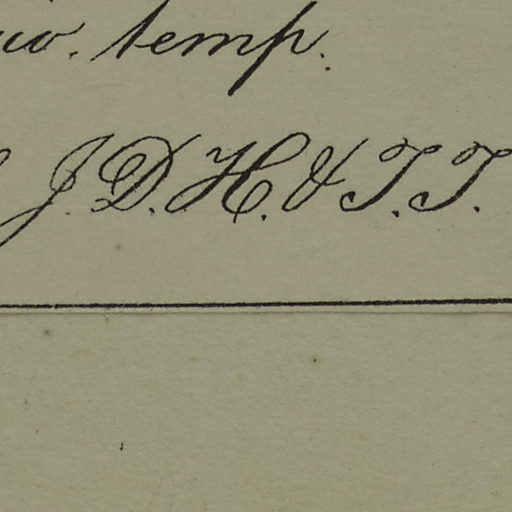 temp.
J. D. H. & T. T.